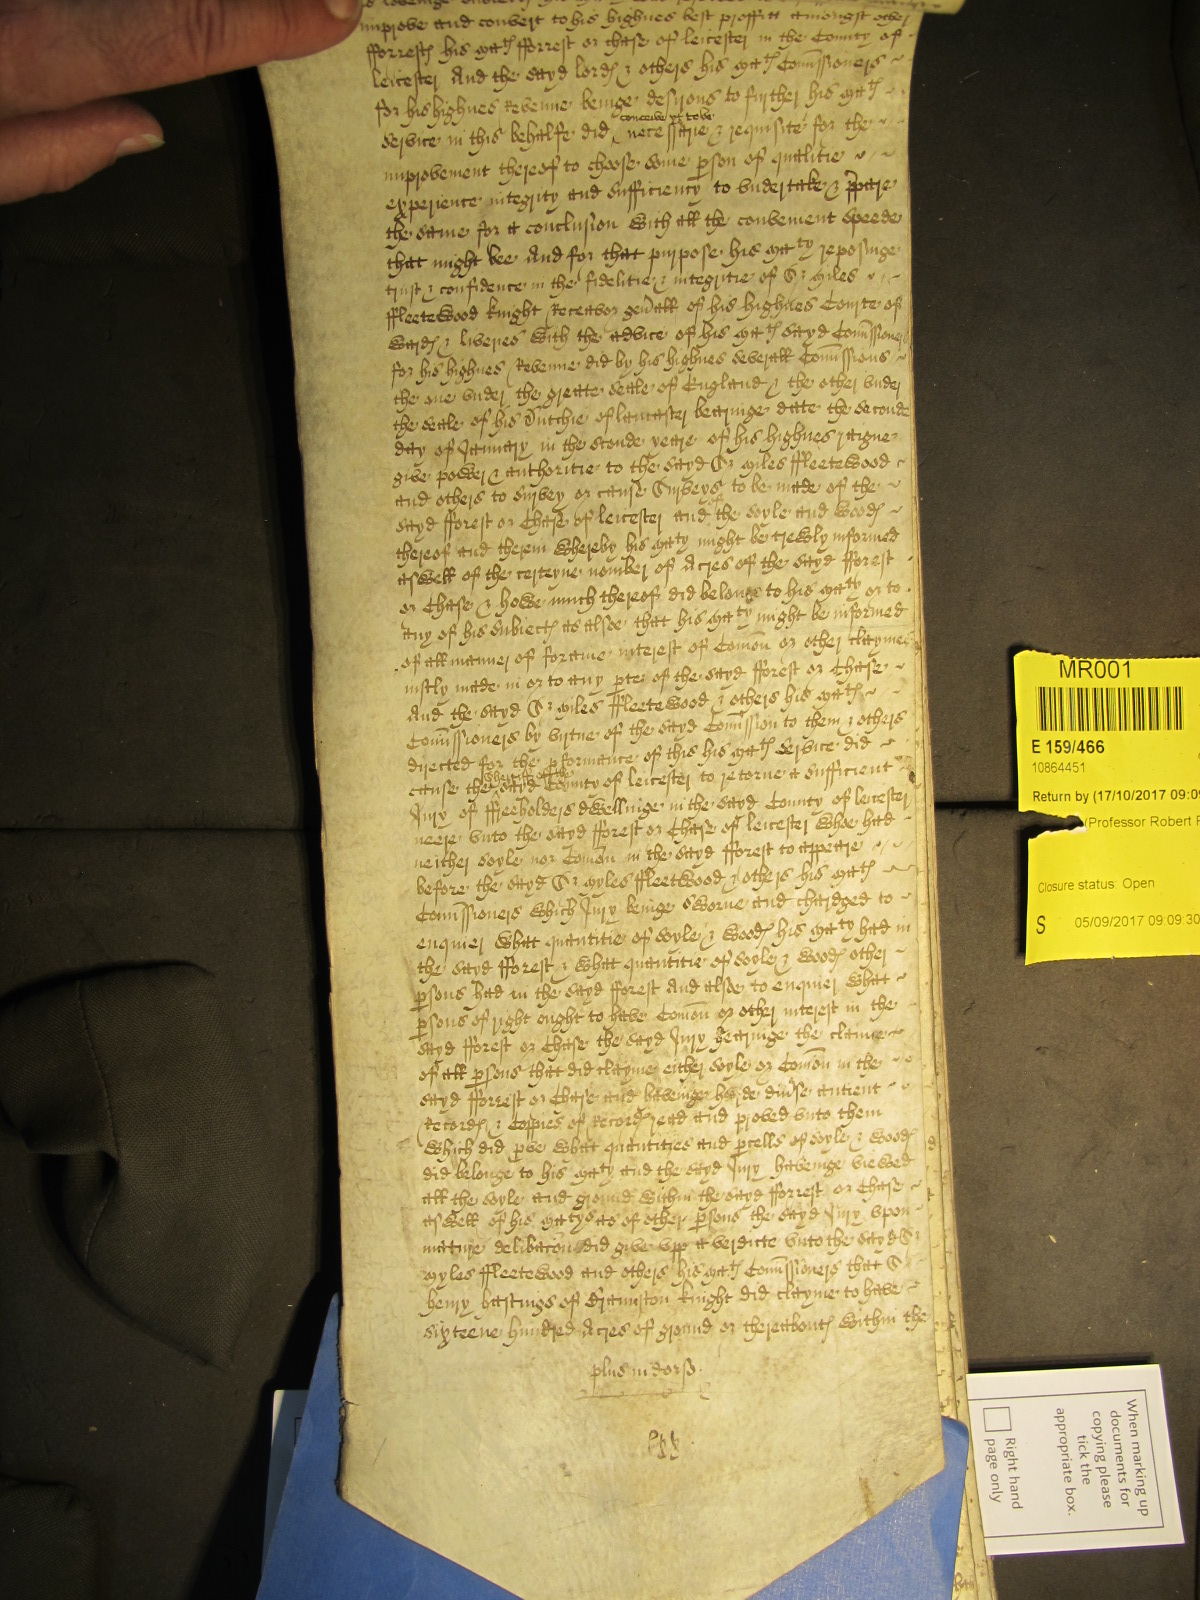 improve and convert to his highnes best proffitt amongst other
fforrestℓ his Matℓ fforrest or chase of leicester in the County of
leicester And the sayd lordℓ & others his Matℓ Com̄issioners
for his highnes Revenue beinge desirous to further his Matℓ
service in this behalfe did conceive yt to be necessarie & requisite for the
improvement thereof to choose some p̱son of qualitie
experience integrity and sufficiency to vndertake & p̄pare
the same for a conclusion with all the convenient speede
that might bee And for that purpose his Maty reposinge
trust & confidence in the fidelitie & integritie of Sr Miles
ffleetewood knight Receavor gen̄all of his highnes Courte of
Wardℓ & liveries with the advice of his Matℓ sayd Com̄issioners
for his highnes Revenue did by his highnes severall Com̄issions
the one vnder the greate seale of England & the other vnder
the seale of his Dutchie of lancaster bearinge date the seconde
day of January in the seconde yeare of his highnes raigne
give power & authoritie to the sayd Sr Miles ffleetewood
and others to survey or cause Surveys to be made of the
sayd fforest or Chase of leicester and the soyle and woodℓ
thereof and therein whereby his Maty might be trewly informed
aswell of the certeyne nomber of Acres of the sayd fforest
or Chase & howe much thereof did belonge to his Maty or to
any of his subiectℓ as alsoe that his Maty might be informed
of all manner of forraine interest of Com̄on or other claymes
iustly made in or to any p̱te of the sayd fforest or Chase
And the sayd Sr Miles ffleetewood & others his Matℓ
Com̄issioners by virtue of the sayd Com̄ission to them & others
directed for the p̱formance of this his Matℓ service did
cause the Sheriffe of the sayd County of leicester to retorne a sufficient
Jury of ffreeholders dwellinge in the sayd County of leicester
neere vnto the sayd fforest or Chase of leicester whoe had
neither soyle nor Com̄on in the sayd fforest to appeare
before the sayd Sr Myles ffleetwood & others his Matℓ
Com̄issioners which Jury beinge sworne and chardged to
enquier what quantitie of soyle & woodℓ his Maty had in
the sayd fforest & what quantitie of soyle & woodℓ other
p̱sons had in the sayd fforest And alsoe to enquier what
p̱sons of right ought to have Com̄on or other interest in the
sayd fforest or Chase the sayd Jury hearinge the claime
of all p̱sons that did clayme either soyle or Com̄on in the
sayd fforrest or Chase and havinge diu̓se antient
Recordℓ & Coppies of Recordℓ read and proved vnto them
which did p̱ve what quantities and p̱cells of soyle & woodℓ
did belonge to his Maty and the sayd Jury havinge viewed
all the soyle and ground within the sayd fforrest or Chase
aswell of his Matys as of other p̱sons the sayd Jury vpon
mature delibac̄on did give vpp a verdicte vnto the sayd Sr
Myles ffleetewood and others his Matℓ Com̄issioners that Sr
henry hastings of Braunston knight did clayme to have
sixteene hundred Acres of ground or thereaboutℓ within the
plus in dorso
MR001
E 159/466
10864451
Return by (17/10/2017 09:09
(Professor Robert F
Closure status: Open
S 05/09/2017 09:09:30
When marking up
documents for
copying please
tick the
appropriate box.
Right hand
page only